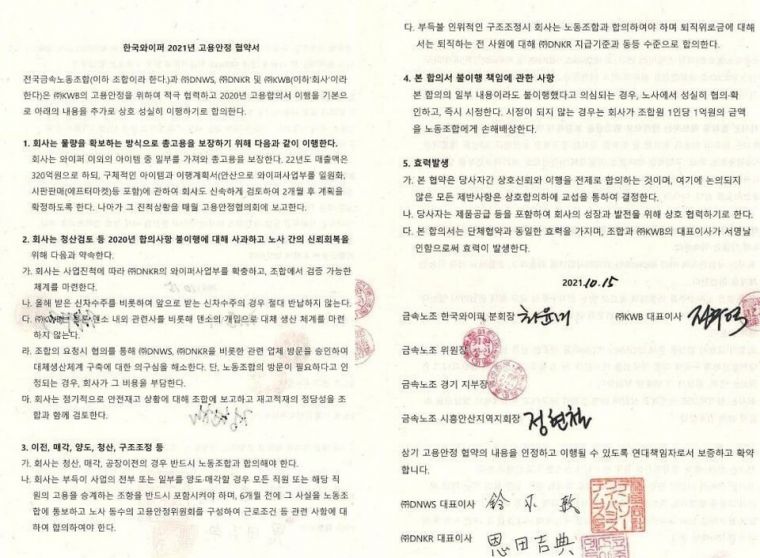 한국와이퍼 2021년 고용안정 협약서
전국금속노동조합(이하 조합이라 한다.)과 ㈜DNWS, ㈜DNKR 및 ㈜KWB(이하'회사'이라
한다)은 ㈜KWB의 고용안정을 위하여 적극 협력하고 2020년 고용합의서 이행을 기본으
로 아래의 내용을 추가로 상호 성실히 이행하기로 합의한다.
1. 회사는 물량을 확보하는 방식으로 총고용을 보장하기 위해 다음과 같이 이행한다.
회사는 와이퍼 이외의 아이템 중 일부를 가져와 총고용을 보장한다. 22년도 매출액은
320억원으로 하되, 구체적인 아이템과 이행계획서(안산으로 와이퍼사업부를 일원화,
시판판매(에프터마켓)등 포함)에 관하여 회사도 신속하게 검토하여 2개월 후 계획을
확정하도록 한다. 나아가 그 진척상황을 매월 고용안정협의회에 보고한다.
2. 회사는 청산검토 등 2020년 합의사항 불이행에 대해 사과하고 노사 간의 신뢰회복을
위해 다음과 약속한다.
가. 회사는 사업진척에 따라 ㈜DNKR의 와이퍼사업부를 확충하고, 조합에서 검증 가능한
체계를 마련한다.
나. 올해 받은 신차수주를 비롯하여 앞으로 받는 신차수주의 경우 절대 반납하지 않는다.
다. ㈜KWB 덴소 내외 관련사를 비롯해 덴소의 개입으로 대체 생산 체계를 마련
하지 않는다.
라. 조합의 요청시 협의를 통해 ㈜DNWS, ㈜DNKR를 비롯한 관련 업체 방문을 승인하여
대체생산체계 구축에 대한 의구심을 해소한다. 단, 노동조합의 방문이 필요하다고 인
정되는 경우, 회사가 그 비용을 부담한다.
마. 회사는 정기적으로 안전재고 상황에 대해 조합에 보고하고 재고적재의 정당성을 조
합과 함께 검토한다.
3. 이전, 매각, 양도, 청산, 구조조정 등
가. 회사는 청산, 매각, 공장이전의 경우 반드시 노동조합과 합의해야 한다.
나. 회사는 부득이 사업의 전부 또는 일부를 양도매각할 경우 모든 직원 또는 해당 직
원의 고용을 승계하는 조항을 반드시 포함시켜야 하며, 6개월 전에 그 사실을 노동조
합에 통보하고 노사 동수의 고용안정위원회를 구성하여 근로조건 등 관련 사항에 대
하여 합의하여야 한다.
다. 부득불 인위적인 구조조정시 회사는 노동조합과 합의하여야 하며 퇴직위로금에 대해
서는 퇴직하는 전 사원에 대해 ㈜DNKR 지급기준과 동등 수준으로 합의한다.
4. 본 합의서 불이행 책임에 관한 사항
본 합의의 일부 내용이라도 불이행했다고 의심되는 경우, 노사에서 성실히 협의·확
인하고, 즉시 시정한다. 시정이 되지 않는 경우는 회사가 조합원 1인당 1억원의 금액
을 노동조합에게 손해배상한다.
5. 효력발생
가. 본 협약은 당사자간 상호신뢰와 이행을 전제로 합의하는 것이며, 여기에 논의되지
않은 모든 제반사항은 상호합의하에 교섭을 통하여 결정한다.
나. 당사자는 제품공급 등을 포함하여 회사의 성장과 발전을 위해 상호 협력하기로 한다.
다. 본 합의서는 단체협약과 동일한 효력을 가지며, 조합과 ㈜KWB의 대표이사가 서명날
인함으로써 효력이 발생한다.
2021.10.15
금속노조 한국와이퍼 분회장 ㈜KWB 대표이사
금속노조 위원장
금속노조 경기 지부장
금속노조 시흥안산지역지회장 정현철
상기 고용안정 협약의 내용을 인정하고 이행될 수 있도록 연대책임자로서 보증하고 확약
합니다.
㈜DNWS 대표이사
㈜DNKR 대표이사 恩田吉典